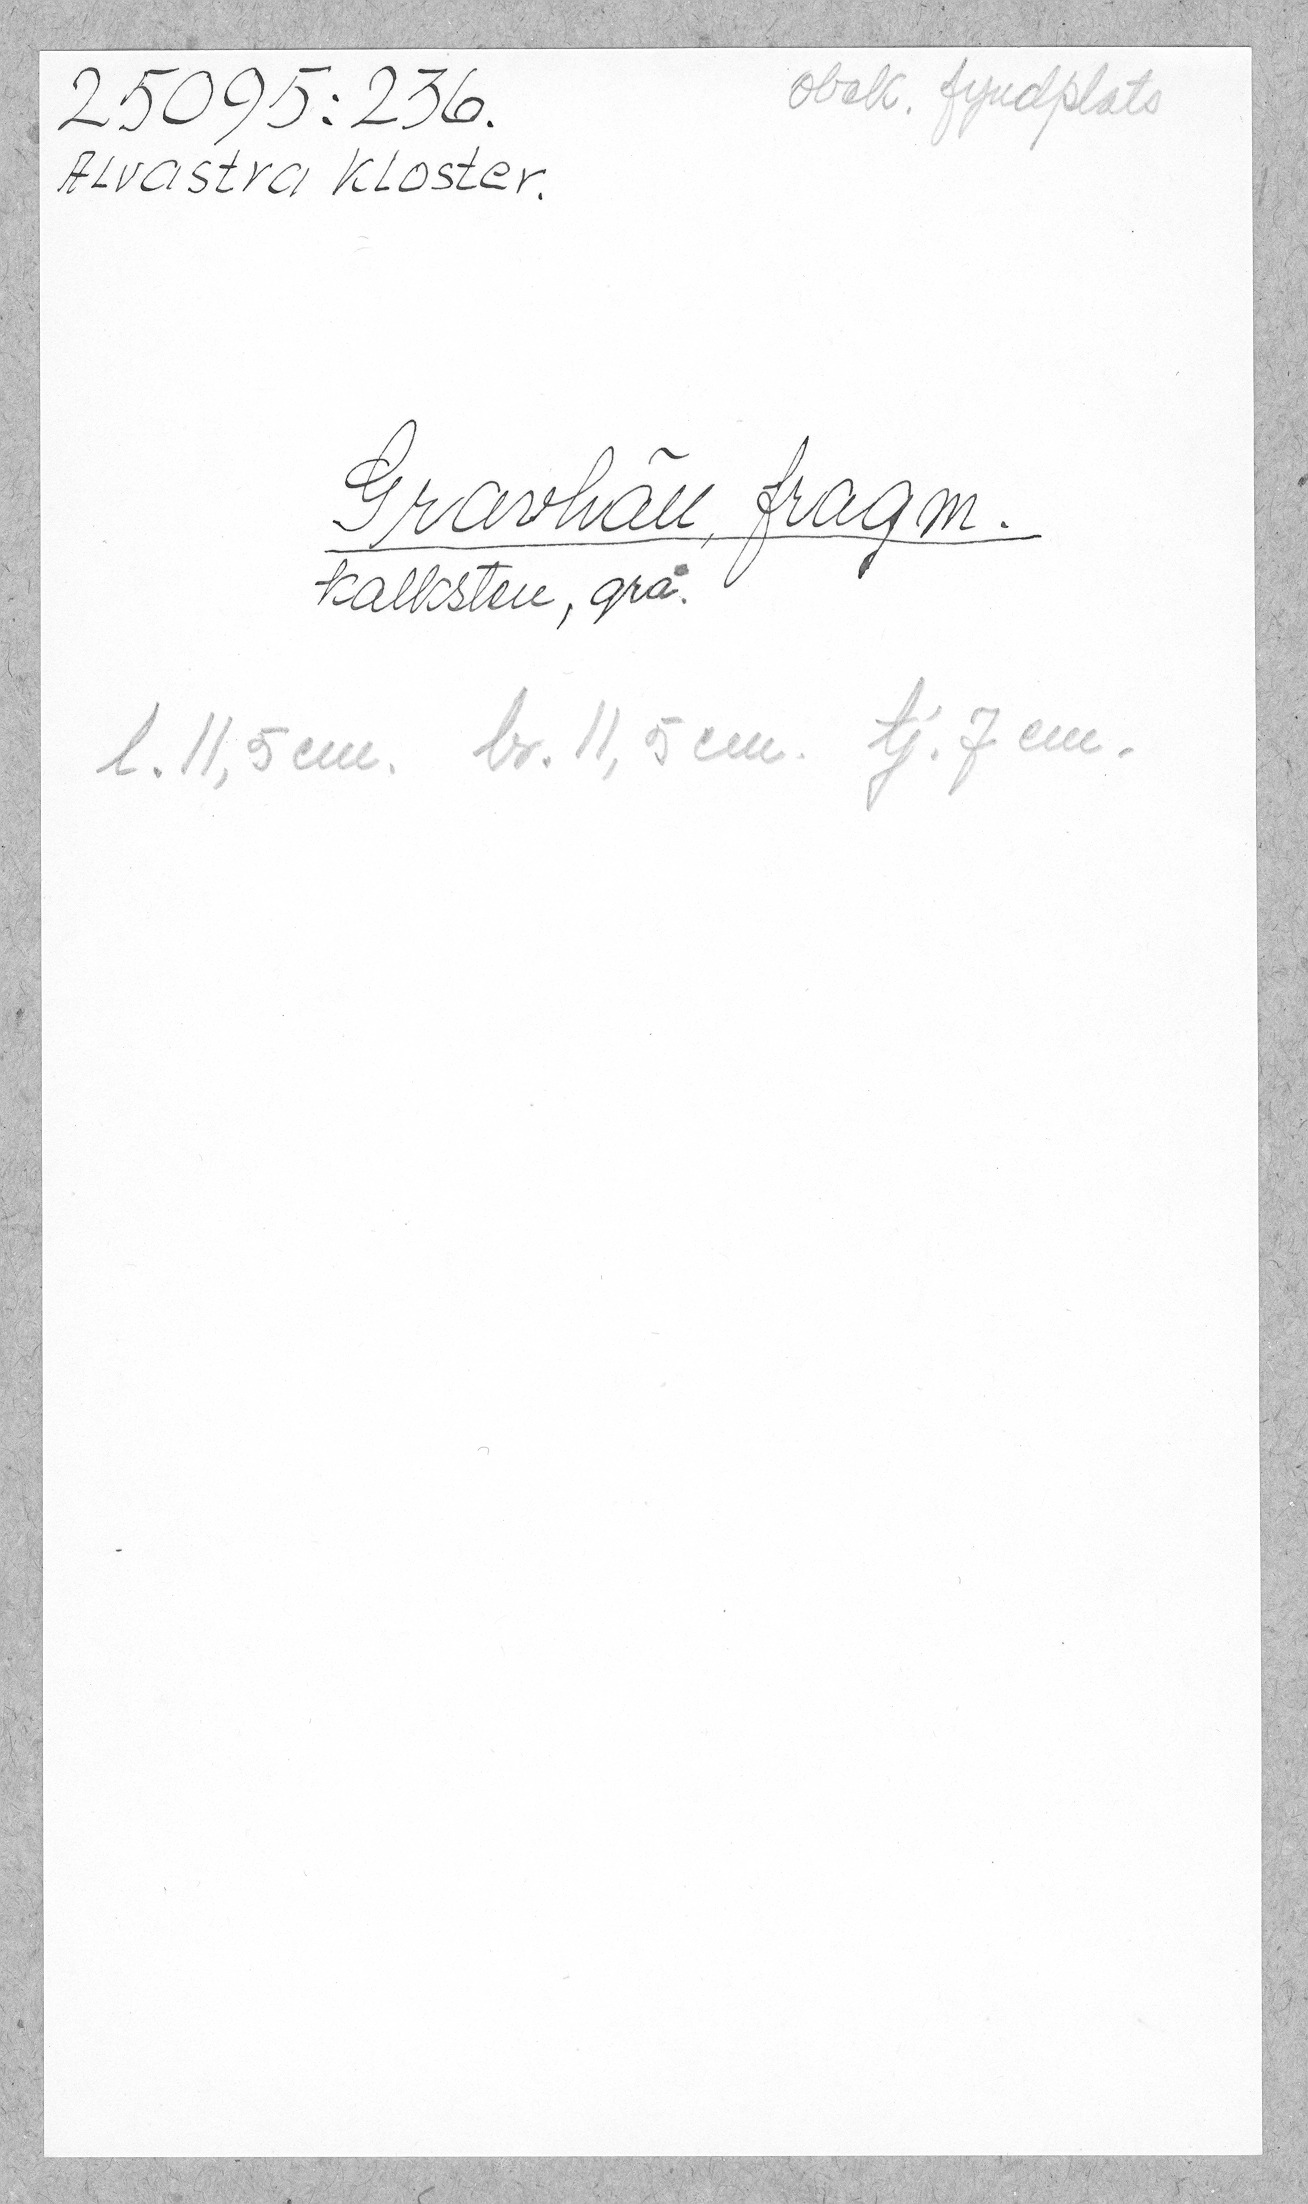 25095:236.
obek. fyndplats
Alvastra Kloster.
Gravhäll, fragm.
kalksten, grå.
l. 11,5 cm. br. 11,5 cm. tj. 7 cm.